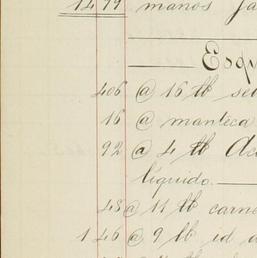 1479 manos
Esqu
406 @ 16 lb
16 @ manteca
92 @ 4 lb
líquido.
43 @ 11 lb carne
146 @ 9 lb id